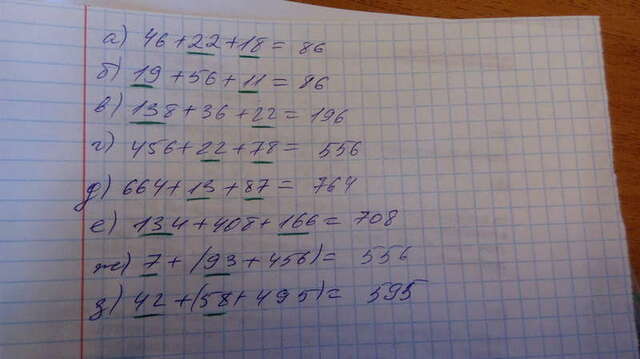 а) 46+22+18=86
б) 19+56+11=86
в) 138+36+22=196
г) 456+22+78=556
д) 664+13+87=764
е) 134+408+166=708
ж) 7+(93+456)=556
з) 42+(58+495)=595